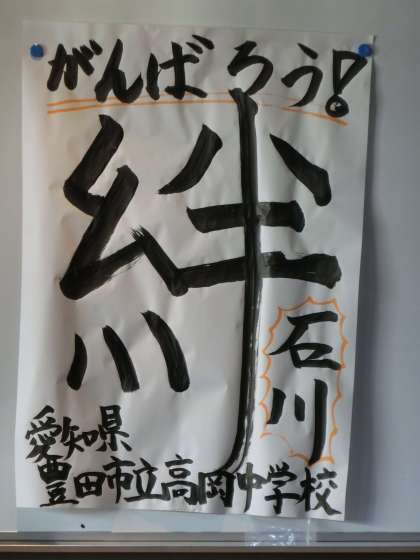 がんばろう!
絆
石川
愛知県
豊田市立高岡中学校